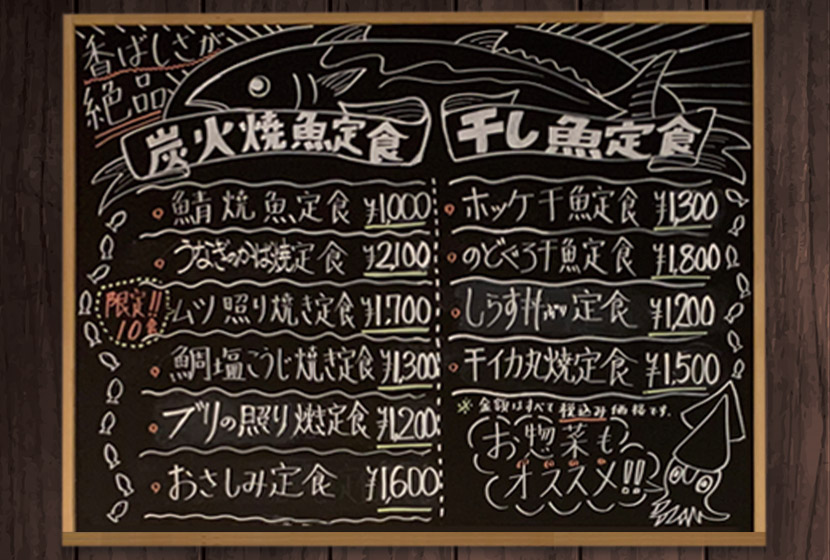 香ばしさが
絶品
炭火焼魚定食
鯖焼魚定食 ¥1,000
うなぎのかば焼定食 ¥2,100
限定!!
10食
ムツ照り焼き定食 ¥1,700
鯛塩こうじ焼き定食 ¥1,300
ブリの照り焼き定食 ¥1,200
おさしみ定食 ¥1,600
干し魚定食
ホッケ干魚定食 ¥1,300
のどぐろ干魚定食 ¥1,800
しらす丼 定食 ¥1,200
干イカ丸焼定食 ¥1,500
※金額はすべて税込み価格です。
お惣菜も
オススメ!!